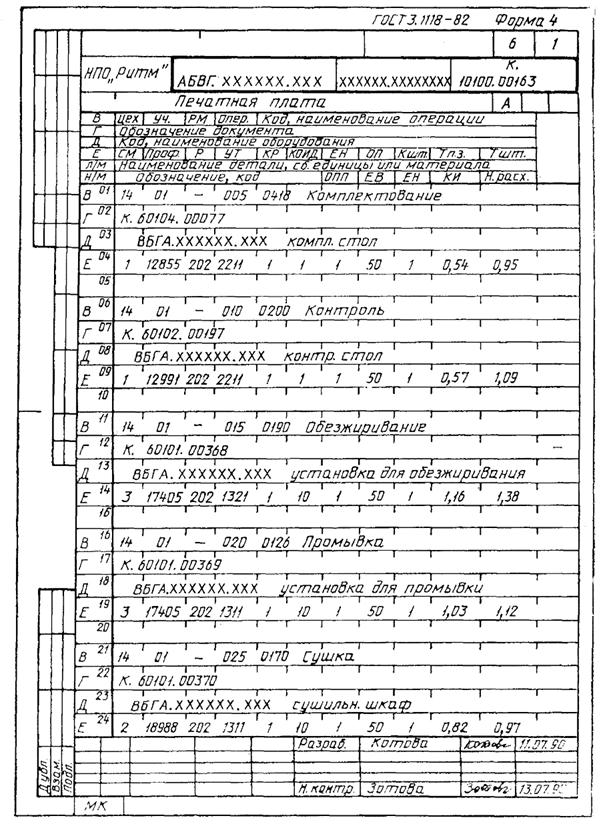 ГОСТ 3.1118-82 Форма 4
6 1
НПО „Ритм" АБВГ. XXXXXX.XXX XXXXXX.XXXXXXXX К. 10100.00163
Печатная плата А
В цех Уч. РМ Опер. Код, наименование операции
Г Обозначение документа
Д Код, наименование оборудования
Е СМ Проф. Р УТ КР КОИД ЕН ОП Кшт. Тпз. Тшт.
Л/М Наименование детали, сб. единицы или материала
Н/М Обозначение, код ОПП ЕВ ЕН КИ Н.расх.
В 01 14 01 – 005 0418 Комплектование
Г 02 К. 60104.00077
Д 03 ВБГА.XXXXXX.XXX компл. стол
Е 04 1 12855 202 2211 1 1 1 50 1 0,54 0,95
05
В 06 14 01 – 010 0200 Контроль
Г 07 К. 60102.00197
Д 08 ВБГА.XXXXXX.XXX контр. стол
Е 09 1 12991 202 2211 1 1 1 50 1 0,57 1,09
10
В 11 14 01 – 015 0190 Обезжиривание
Г 12 К. 60101.00368
Д 13 ВБГА.XXXXXX.XXX установка для обезжиривания
Е 14 3 17405 202 1321 1 10 1 50 1 1,16 1,38
15
В 16 14 01 – 020 0126 Промывка
Г 17 К. 60101.00369
Д 18 ВБГА.XXXXXX.XXX установка для промывки
Е 19 3 17405 202 1311 1 10 1 50 1 1,03 1,12
20
В 21 14 01 – 025 0170 Сушка
Г 22 К. 60101.00370
Д 23 ВБГА.XXXXXX.XXX сушильн. шкаф
Е 24 2 18988 202 1311 1 10 1 50 1 0,82 0,97
Разраб. Котова 11.07.90
Дубл.
Взам.
Подл.
Н.контр. Зотова
МК